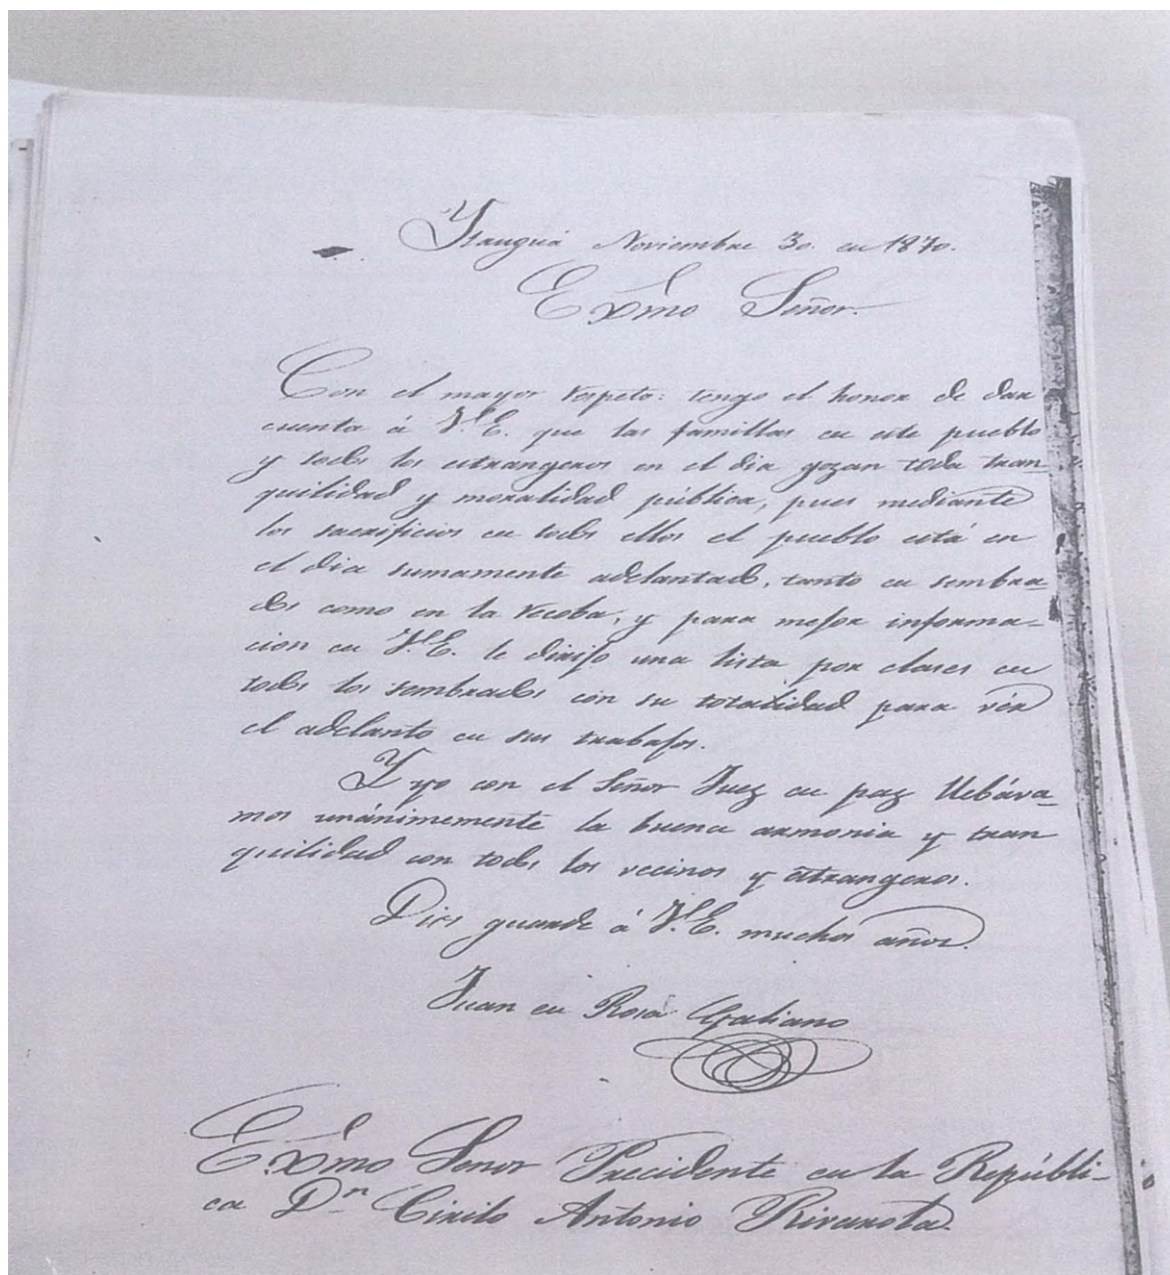 Ytauguá Noviembre 30. de 1870.
Exmo Señor.
Con el mayor respeto: tengo el honor de dar
cuenta á V.E. que las familias en este pueblo
y todos los extrangeros en el dia gozan toda tran
quilidad y moralidad pública, pues mediante
los sacrificios de todos ellos el pueblo está en
el dia sumamente adelantado, tanto en sembra-
dos como en la recoba, y para mejor informa-
cion de V.E. le dirijo una lista por clases de
todos los sembrados con su totalidad para vér
el adelanto de sus trabajos.
Y yo con el Señor Juez de paz llebáva-
mos unánimemente la buena armonia y tran
quilidad con todos los vecinos y extrangeros.
Dios guarde á V.E. muchos años.
Juan de Rosa Galiano
Exmo Señor Precidente de la Repúbli-
ca Dn Cirilo Antonio Rivarola.